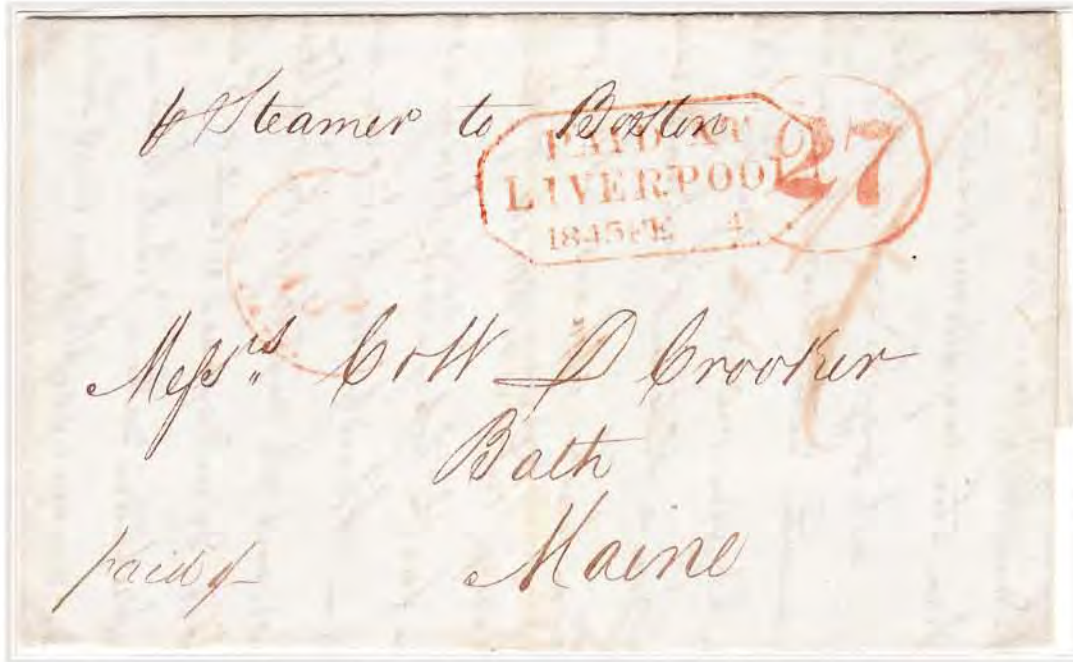 p Steamer to Boston
PAID AT
LIVERPOOL
1845 FE 4
27
Messrs C & W D Crooker
Bath
Maine
paid